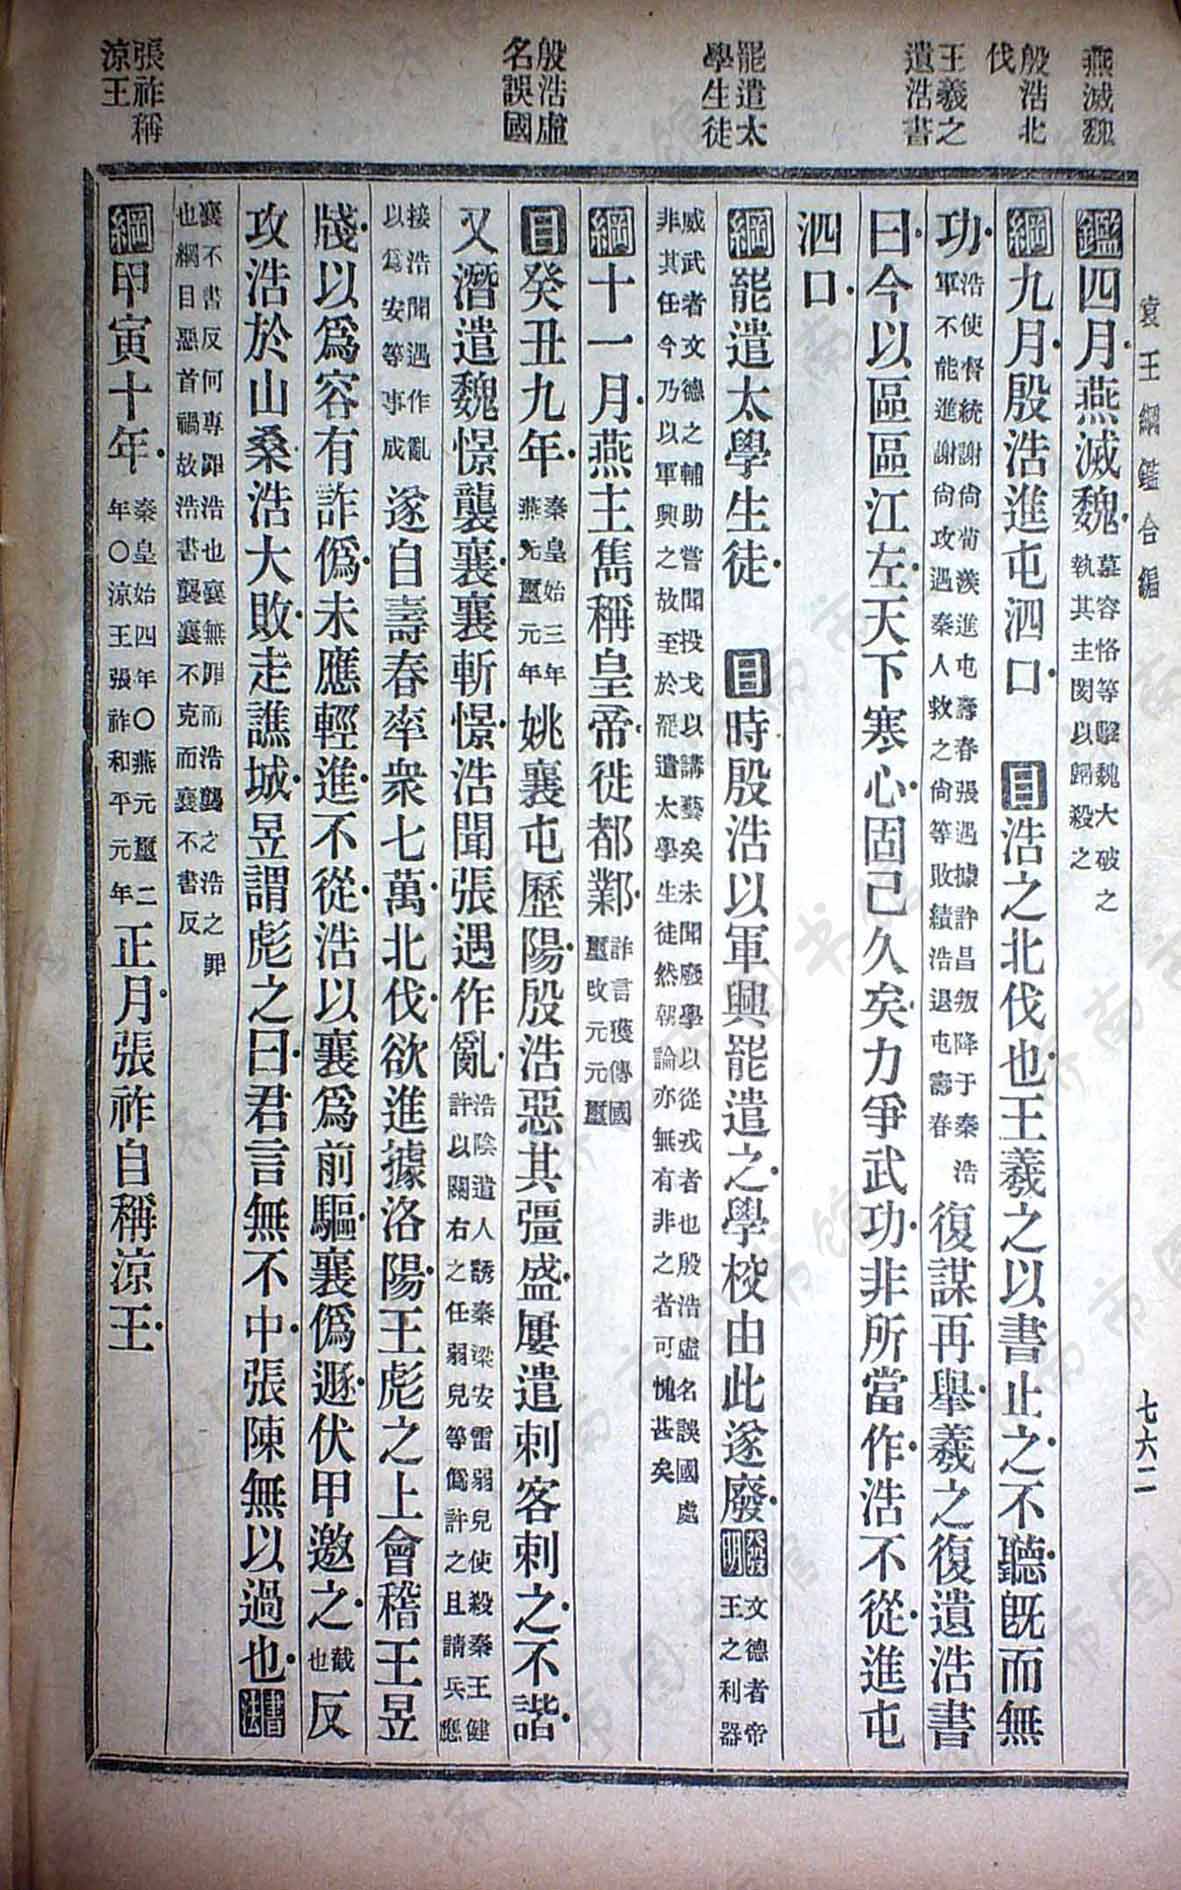 袁王綱鑑合編
七六二
燕滅魏
殷浩北
伐
王羲之
遺浩書
罷遣太
學生徒
殷浩虛
名誤國
張祚稱
涼王
鑑四月燕滅魏慕容恪等擊魏大破之執其主閔以歸殺之
綱九月殷浩進屯泗口 目浩之北伐也王羲之以書止之不聽既而無
功浩使督統謝尚荀羨進屯壽春張遇據許昌叛降于秦浩軍不能進謝尚攻遇秦人救之尚等敗績浩退屯壽春復謀再舉羲之復遺浩書
曰今以區區江左天下寒心固已久矣力爭武功非所當作浩不從進屯
泗口
綱罷遣太學生徒 目時殷浩以軍興罷遣之學校由此遂廢發明文德者帝王之利器
威武者文德之輔助嘗聞投戈以講藝矣未聞廢學以從戎者也殷浩虛名誤國處非其任今乃以軍興之故至於罷遣太學生徒然朝論亦無有非之者可愧甚矣
綱十一月燕主雋稱皇帝徙都鄴詐言獲傳國璽改元元璽
目癸丑九年秦皇始三年燕元璽元年姚襄屯歷陽殷浩惡其彊盛屢遣刺客刺之不諧
又潛遣魏憬襲襄襄斬憬浩聞張遇作亂浩陰遣人誘秦梁安雷弱兒使殺秦王健許以關右之任弱兒等僞許之且請兵應
接浩聞遇作亂以爲安等事成遂自壽春率衆七萬北伐欲進據洛陽王彪之上會稽王昱
牋以爲容有詐僞未應輕進不從浩以襄爲前驅襄僞遯伏甲邀之截也反
攻浩於山桑浩大敗走譙城昱謂彪之曰君言無不中張陳無以過也書法
襄不書反何專罪浩也襄無罪而浩襲之浩之罪也綱目惡首禍故浩書襲襄不克而襄不書反
綱甲寅十年秦皇始四年〇燕元璽二年〇涼王張祚和平元年正月張祚自稱涼王